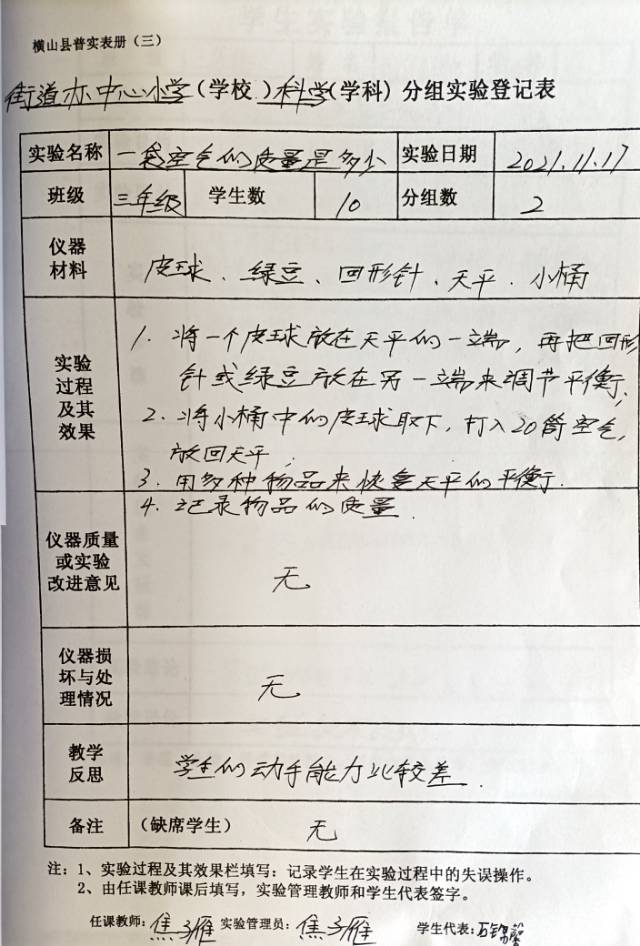 横山县普实表册（三）
街道办中心小学（学校）科学（学科）分组实验登记表
实验名称 一袋空气的质量是多少 实验日期 2021.11.17
班级 三年级 学生数 10 分组数 2
仪器
材料
皮球、绿豆、回形针、天平、小桶
实验
过程
及其
效果
1. 将一个皮球放在天平的一端，再把回形
针或绿豆放在另一端来调节平衡，
2. 将小桶中的皮球取下，打入20筒空气，
放回天平，
3. 用多种物品来恢复天平的平衡.
4. 记录物品的质量.
仪器质量
或实验
改进意见
无
仪器损
坏与处
理情况
无
教学
反思
学生的动手能力比较差.
备注 （缺席学生） 无
注：1、实验过程及其效果栏填写：记录学生在实验过程中的失误操作。
2、由任课教师课后填写，实验管理教师和学生代表签字。
任课教师：焦子雁 实验管理员：焦子雁 学生代表：石